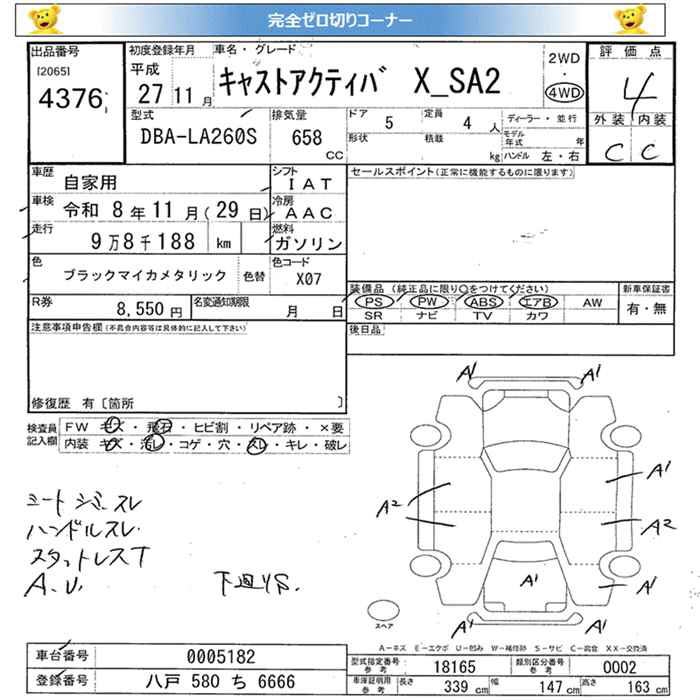 完全ゼロ切りコーナー
出品番号 初度登録年月 車名・グレード 2WD 評価点
[2065] 平成 ・
4376 27 11月 キャストアクティバ X_SA2 4WD 4
型式 排気量 ドア 5 定員 4人 ディーラー・並行 外装 内装
DBA-LA260S 658 CC 形状 積載 kg モデル年式 年 C C
ハンドル 左・右
車歴 自家用 シフト IAT セールスポイント(正常に機能するものに限ります)
車検 令和 8年 11月(29日) 冷房 AAC
走行 9万8千188 km 燃料 ガソリン
色 ブラックマイカメタリック 色替 色コード X07
装備品 (純正品に限り○をつけてください) 新車保証書
R券 8,550円 名変通知期限 月 日 PS PW ABS エアB AW 有・無
SR ナビ TV カワ
注意事項申告欄(不具合内容等は具体的に記入して下さい) 後日品
修復歴 有〔箇所 〕
検査員記入欄 FW キズ・飛石・ヒビ割・リペア跡・×要
内装 キズ・汚レ・コゲ・穴・スレ・キレ・破レ
A1 A1
A1
A2 A2
A1 A1
A1 A1
シートシワ・スレ
ハンドルスレ・
スタットレスT
A.U,
スペア
A-キズ E-エクボ U-凹み W-補修跡 S-サビ C-腐食 XX-交換済
車台番号 0005182 型式指定番号 参考 18165 類別区分番号 参考 0002
登録番号 八戸 580 ち 6666 車庫証明用 参考 長さ 339 cm 幅 147 cm 高さ 163 cm